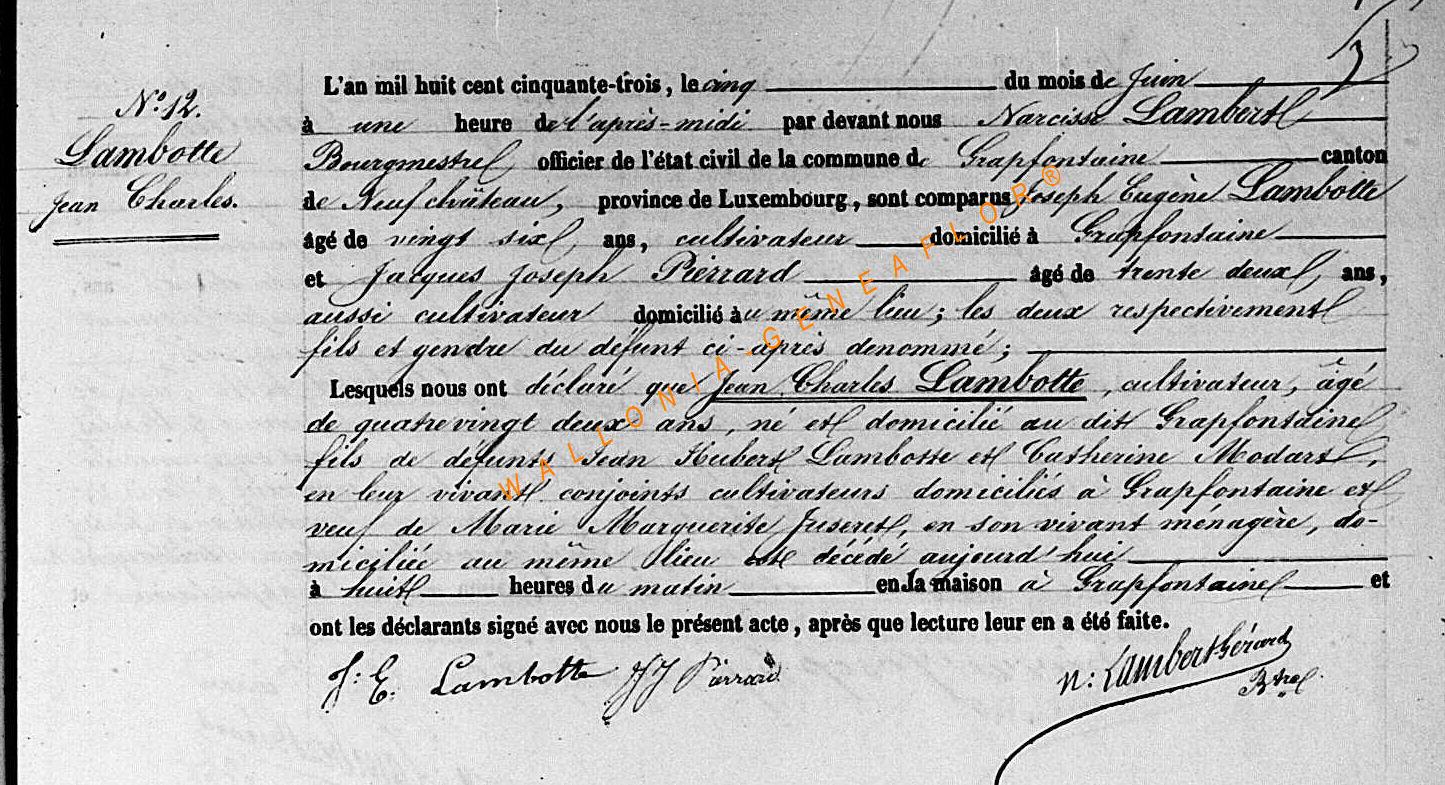 N° 12.
Lambotte
Jean Charles.
L'an mil huit cent cinquante-trois, le cinq du mois de Juin
à une heure de l'après-midi par devant nous Narcisse Lambert
Bourgmestre officier de l'état civil de la commune de Grapfontaine canton
de Neufchâteau, province de Luxembourg, sont comparus Joseph Eugène Lambotte
âgé de vingt six ans, cultivateur domicilié à Grapfontaine
et Jacques Joseph Pierrard âgé de trente deux ans,
aussi cultivateur domicilié au même lieu; les deux respectivement
fils et gendre du défunt ci-après denommé;
Lesquels nous ont déclaré que Jean Charles Lambotte, cultivateur, âgé
de quatrevingt deux ans, né et domicilié au dit Grapfontaine
fils de défunts Jean Hubert Lambotte et Catherine Modart,
en leur vivant conjoints cultivateurs domiciliés à Grapfontaine et
veuf de Marie Marguerite Juseret, en son vivant ménagère, do-
miciliée au même lieu est décédé aujourd'hui
à huit heures du matin en la maison à Grapfontaine et
ont les déclarants signé avec nous le présent acte, après que lecture leur en a été faite.
J: E: Lambotte JJ Pierrard N: Lambert Gérard
Btre.
WALLONIA-GENEAFLOR®